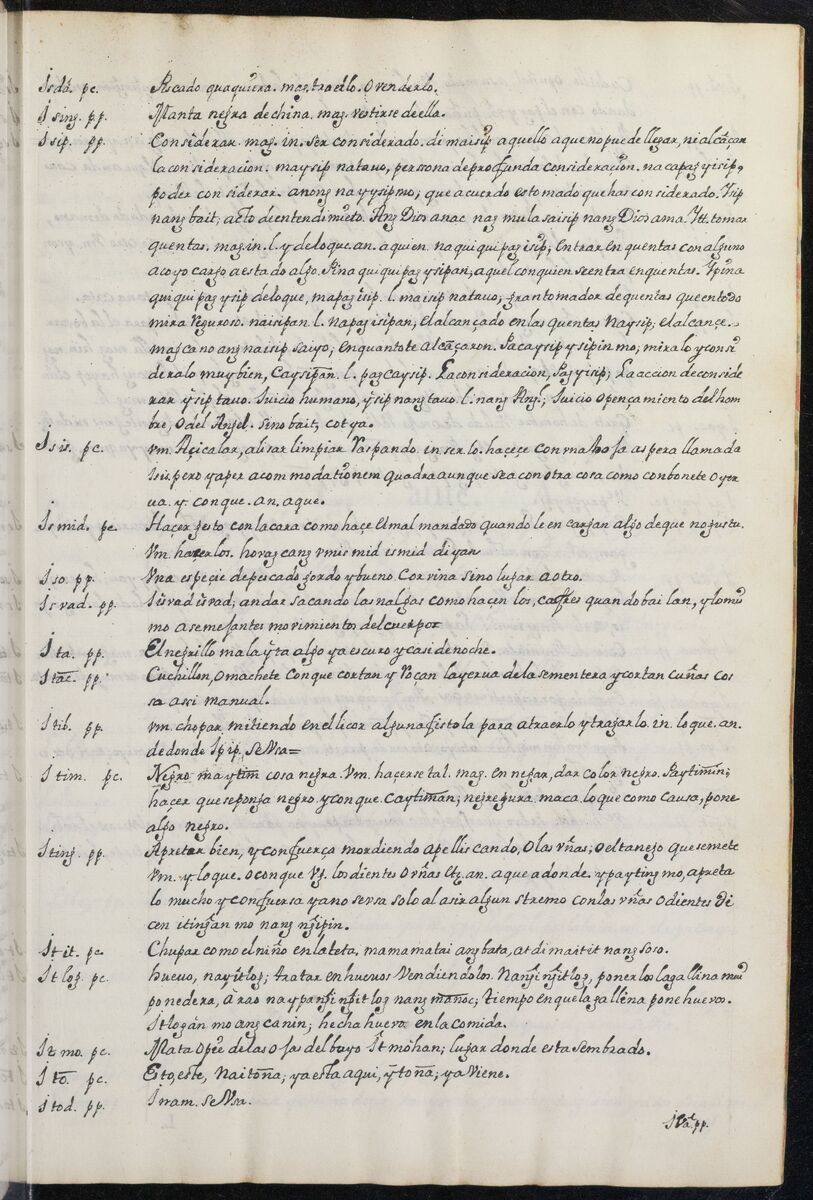 Isda. pc. Pescado quaquiera. mag. traerlo. o venderlo.
Ising. pp. Manta negra de china. mag. vestirse de ella.
Isip. pp. Considerar. mag. in. ser considerado. di maisip aquello a que no puede llegar, ni alcãçar
la consideracion. maysip natauo, persona de profunda consideracion. na capagyisip,
poder considerar. anong na yysipmo; que acuerdo es tomado que has considerado. Ysip
nang bait; acto de entendimiẽto. Ang Dios anac nag mula sa isip nang Dios ama. Ytt. tomar
quentas. mag. in. l. y de lo que. an. a quien. naqui quipag isip; entrar en quentas con alguno
a cuyo cargo a estado algo. Pina qui quipag ysipan, aquel con quien se entra en quentas. Ypina
qui quipag ysip de lo que, mapag isip. l. maisip natauo; gran tomador de quentas que en todo
mira riguroso. naisipan l. napag isipan, el alcançado en las quentas naysip; el alcançe.
magcano ang naisip saiyo; en quanto te alcãçaron. Pacaysip ysipin mo; miralo y consi
deralo muy bien, Caysipan. l. pagcaysip. La consideracion, Pagyisip; La accion de conside
rar ysip tauo. Juicio humano, ysip nang tauo l. nang Angl.; Juicio o pençamiento del hom
bre, o del Anjel. sino bait, cot ya.
Isis. pc. vm. Açicalar, alisar limpiar raspando. in. ser lo. haçeçe con vna hoja aspera llamada
Isis pero y aper acommodationem quadra aunque sea con otra cosa como con bonete o yer
ua. y. con que. an. a que.
Ismid. pc. Haçer jesto con la cara como haçe el mal mandado quando le encargan algo de que no gusta.
vm. hacerlos. horag cang vmis mid ismid diyan
Iso. pp. Vna espeçie de pescado gordo y bueno. Corvina sino lugar a otro.
Isvad. pp. Isvad isvad; andar sacando las nalgas como hacen los, cafres quando bailan, y lo mis
mo a semejantes movimientos del cuerpo.
Ita. pp. El negrillo mala yta algo ya escuro y casi de noche.
Itac. pp. Cuchillon, o machete con que cortan y roçan la yerua de la sementera y cortan cuñas cos
sa assi manual.
Itib. pp. vm. chopar mitiendo en el licor alguna fistola para atraerlo y tragarlo. in. lo que. an.
de donde Ipip. se vsa=
Itim. pc. Negro maytim cosa negra. vm. haçerse tal. mag. en negar, dar color negro. Paytimin;
haçer que se ponga negro y con que. Caytiman; negregura. maca. lo que como causa, pone
algo negro.
Iting. pp. Apretar bien, y con fuerça mordiendo a pelliscando, o las vñas; o el tanejo que se mete
vm. y lo que. o con que vg. los dientes o vñas &c. an. a que a donde. ypa yting mo, apreta
lo mucho y con fuersa ya no se vsa solo al asir algun stremo con las vñas o dientes di
cen itingan mo nang ngipin.
Itit. pc. Chupar como el niño en la teta. mamamatai ang bata, at di maitit nang soso.
Itlog. pc. huevo, nayitlog; tratar en huevos vendiendolos. Nangingitlog, ponerlos la gallina muy
ponedera, Arao na ypangingitlog nang manoc; tiempo en que la gallina pone huevos.
Itlogan mo ang canin; hecha huevo. en la comida.
Itmo. pc. Mata o pie de las ojas del buyo Itmohan; lugar donde esta sembrado.
Ito. pc. Esto, este, Naitona; ya esta aqui, ytona; ya viene.
Itod. pp. Iram. se vsa.